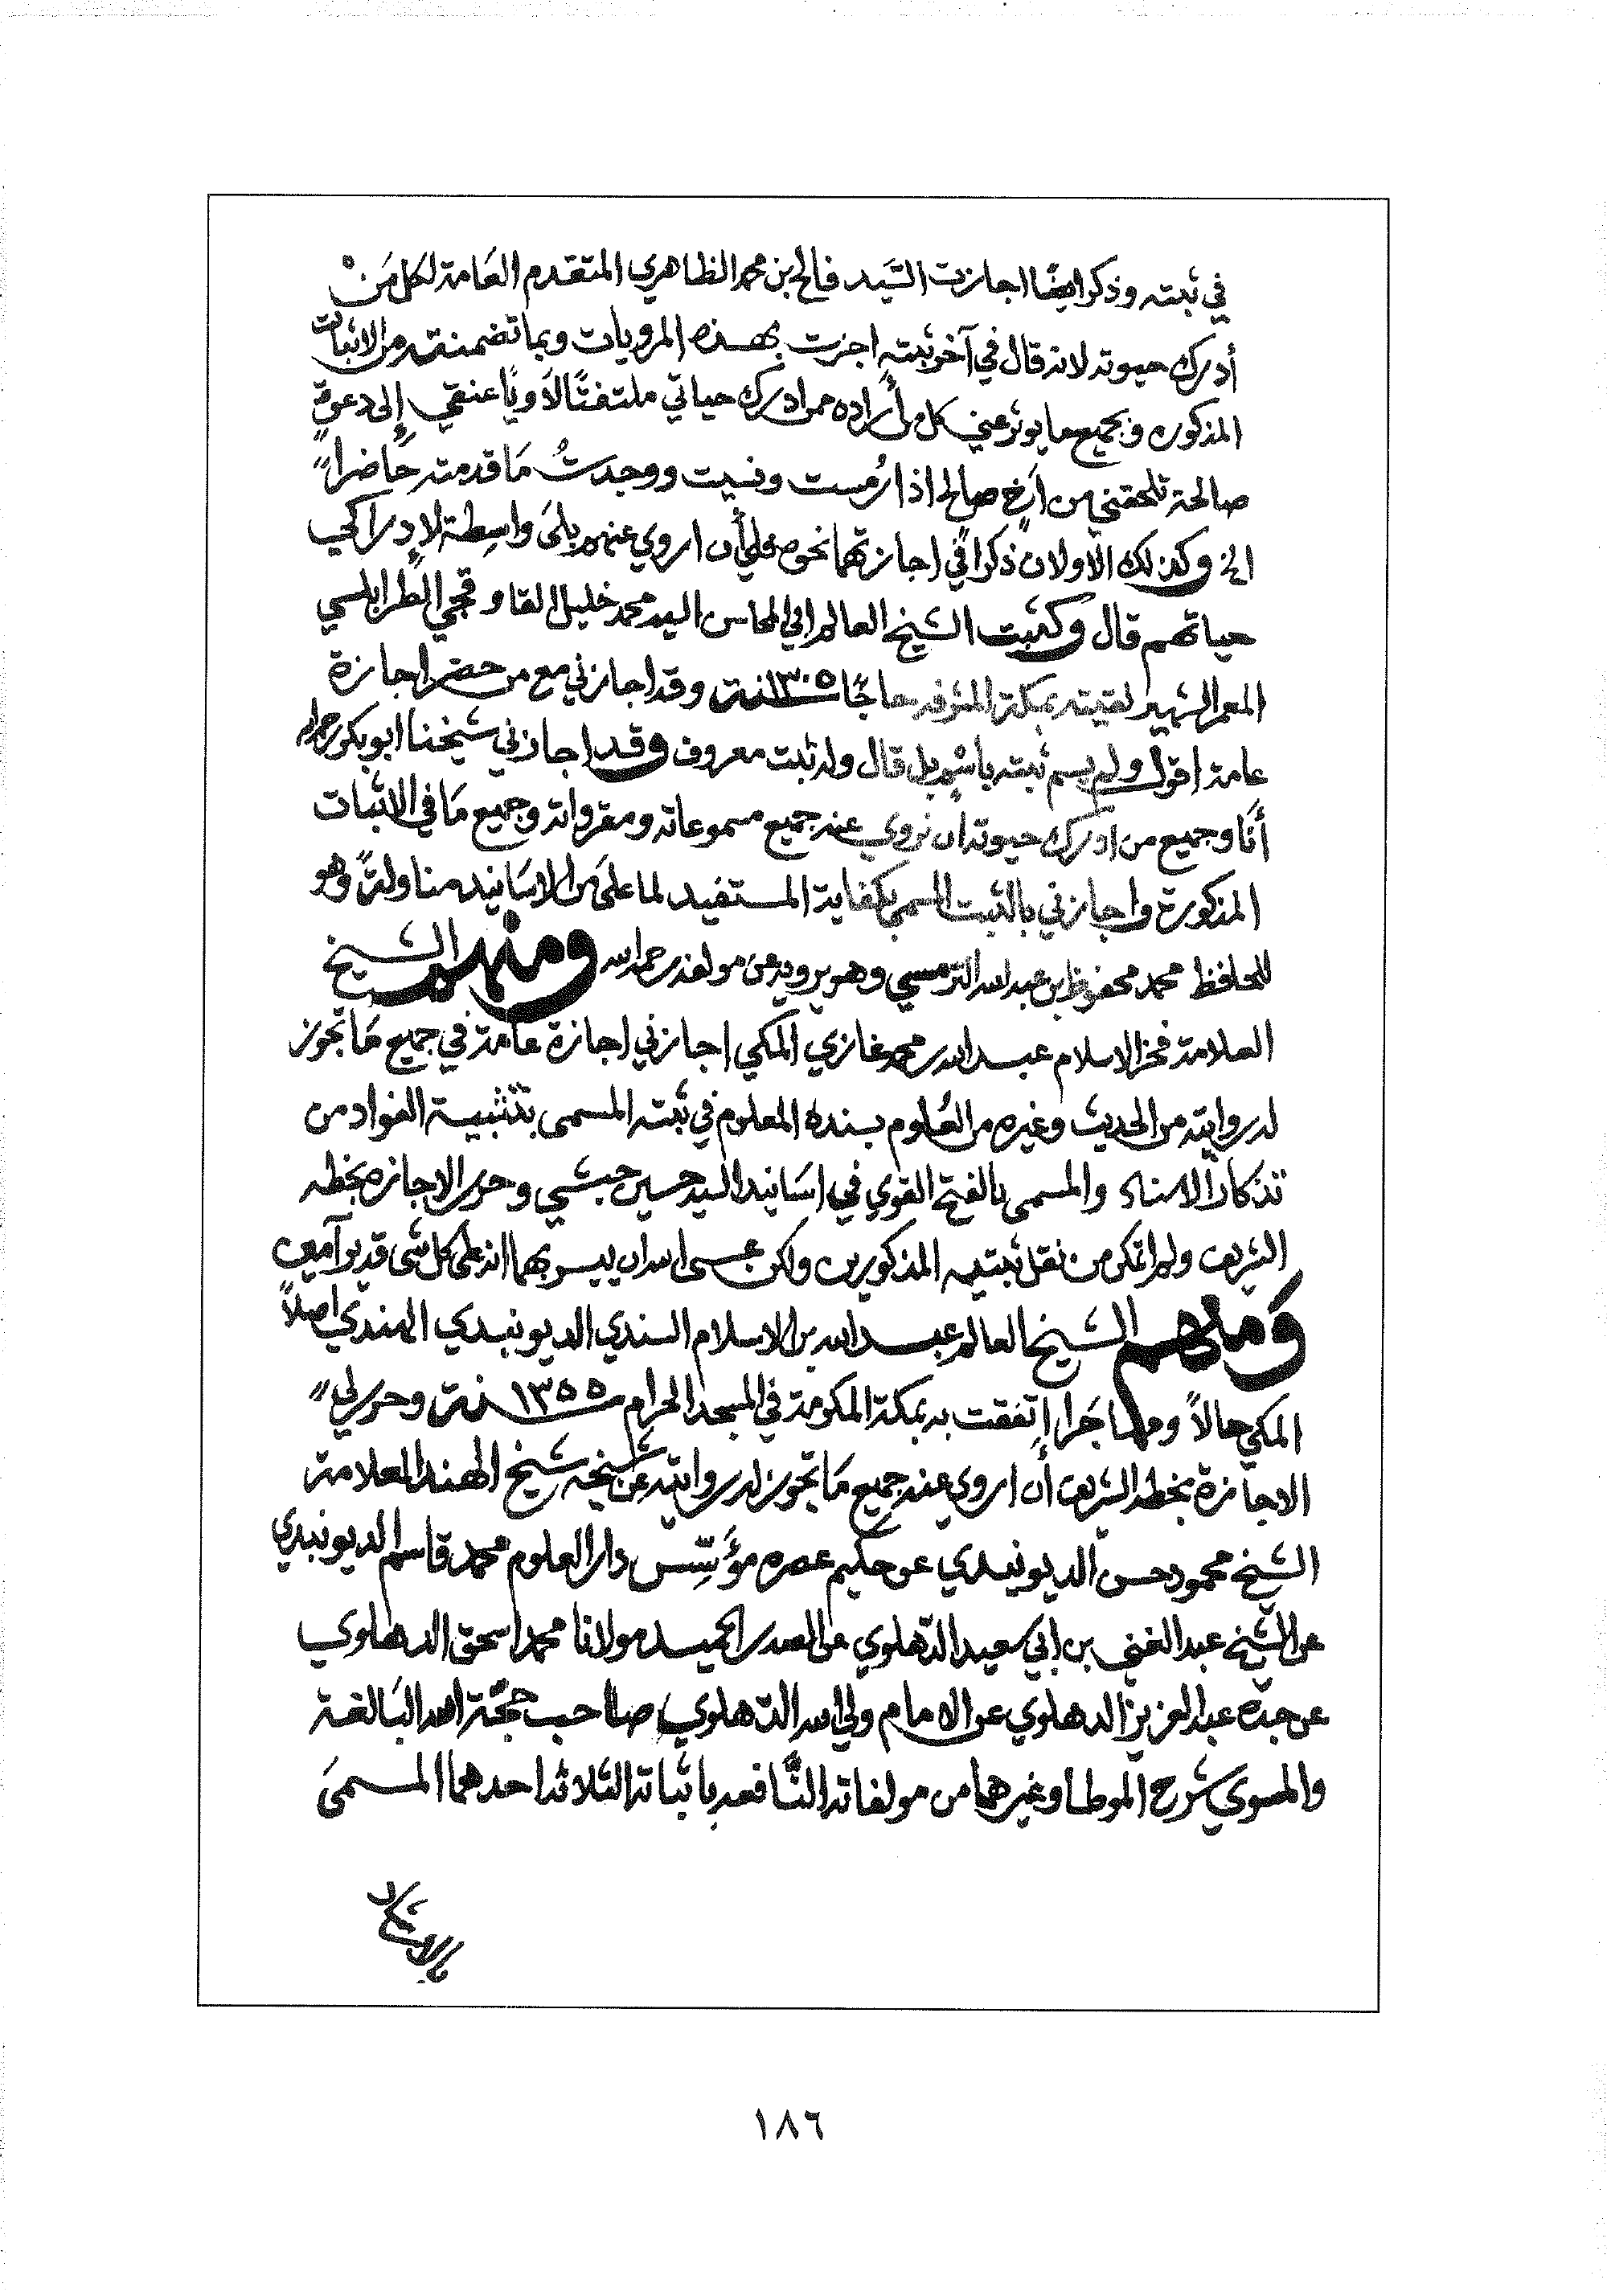 في ثبته وذكر ايضًا اجازت السَّيد فالح بن محمد الظاهري المتقدم العَامة لكل مَنْ
أدرك حيوته لانه قال في آخر ثبتهِ اجزت بهذه المرويات وبما تضمنته من الاثبات
المذكوره وبجميع ما يوثر عني كل من أراده ممن ادرك حياتي ملتفتًا لاويًا عنقي إلى دعوةٍ
صالحة تلحقني من اَخٍ صالح اذا رُمست ونسيت ووجدتُ مَا قدمته حَاضراً
الخ وكذلك الأولان ذكرا في اجازتهما نحوه فلي أن اروي عنهم بلى واسِطة لإدراكي
حياتهم قال وكثبت الشيخ العالم ابي المحاسن السيد محمد خليل القاوقجي الطرابلسي
المعمر الشهير لقيته بمكة المشرفه حاجًا سنة ١٣٠٥ وقد اجازني مع من حضر اجازة
عامة اقول ولم يسم ثبته باسْمٍ بل قال وله ثبت معروف وقد اجازني شيخنا ابو بكر
أنَا وجميع من ادرك حيوته ان نروي عنه جميع مسموعاته ومقرواته وجميع مَا في الاثبات
المذكورة واجازني بالثبت المسمى بكفاية المستفيد لما علىَ من الاسَانيد مناولةً وهو
للحافظ محمد محفوظ بن عبد الله الترمسي وهو يرويه عن مولفه رحمه الله ومنهم الشيخ
العلامة فخر الاسلام عبد الله بن محمد غازي المكي اجازني اجازة عامة في جميع مَا تجوز
له روايته من الحديث وغيره من العُلوم بسنده المعلوم في ثبته المسمى بتنثبية الفواد من
تذكار الاسناد والمسمى بالفتح القوي في اسَانيد السيد حسين حبشي وحرر الاجازه بخطه
الشريف ولم اتمكن من نقل ثبتيه المذكورين ولكن عسى الله ان ييسر بهما انه على كل شى قدير آمين
وَمنهم الشيخ العالم عبد الله بن الاسلام السندي الديونبدي الهندي اصلاً
المكي حالاً ومهاجَرا إتفقت به بمكة المكرمة في المسجد الحرام سنة ١٣٥٥ وحرر لي
الاجازة بخطه الشريف أن اروي عنه جميع مَا تجوز له روايته عن شيخه شيخ الهند العلامة
الشيخ محمود حسن الديونبدي عن حكيم عصره مؤسِّس دار العلوم محمد قاسم الديونبدي
عن الشيخ عبد الغني بن ابي سعيد الدّهلوي عن الصدر الحميد مولانا محمد اسحق الدهلوي
عن جده عبد العزيز الدهلوي عن الامام ولي الله الدّهلوي صاحب حجّة الله البَالغة
والمسوي شرح الموطأ وغيرهما من مولفاته النَّافعه باثباته الثلاثه احدهما المسمىَ
١٨٦